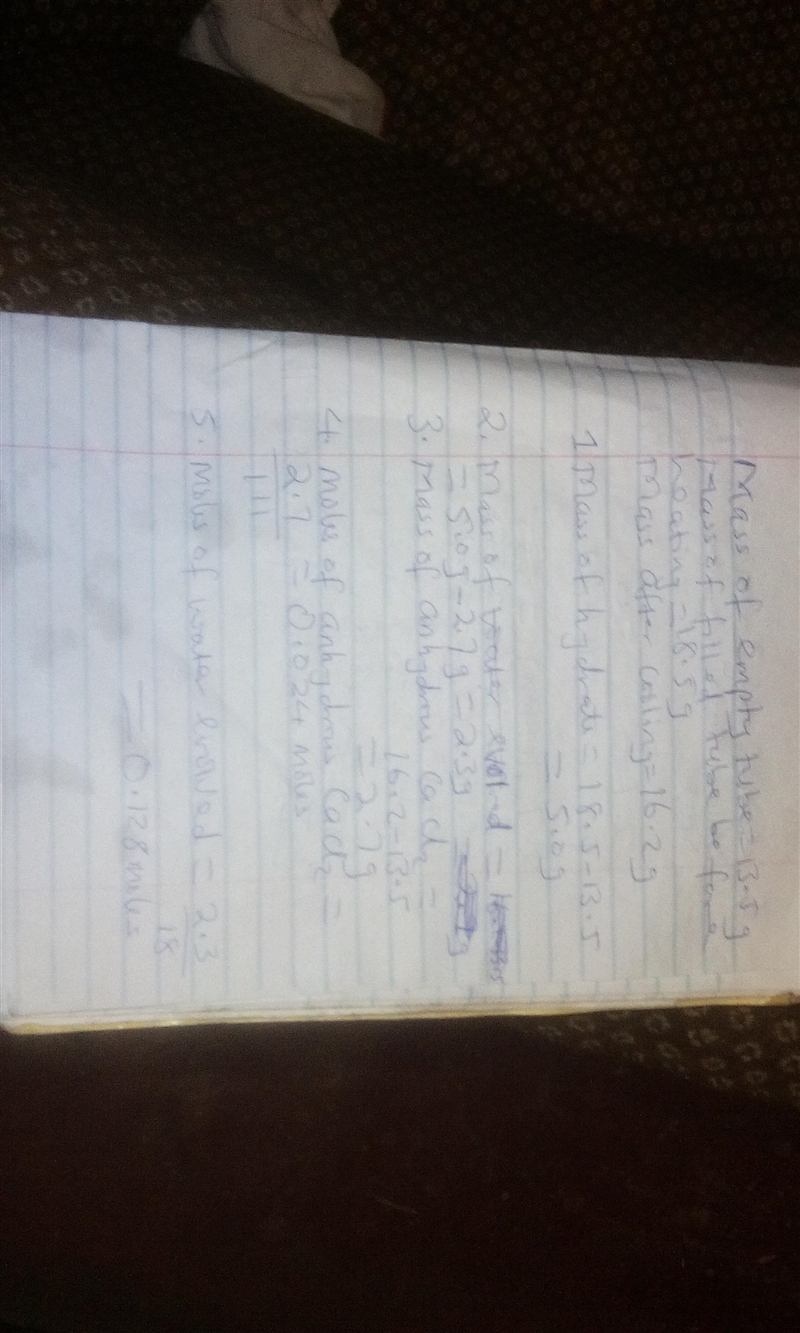 Mass of empty tube = 13.5g
Mass of filled tube before
heating = 18.5g
Mass after cooling = 16.2g
1 Mass of hydrate = 18.5 - 13.5
= 5.0g
2. Mass of water evolved =
= 5.0g - 2.7g = 2.3g
3. Mass of anhydrous CaCl₂ =
16.2 - 13.5
= 2.7g
4. Moles of anhydrous CaCl₂ =
2.7 = 0.024 moles
111
5. Moles of water evolved = 2.3
18
= 0.128 moles